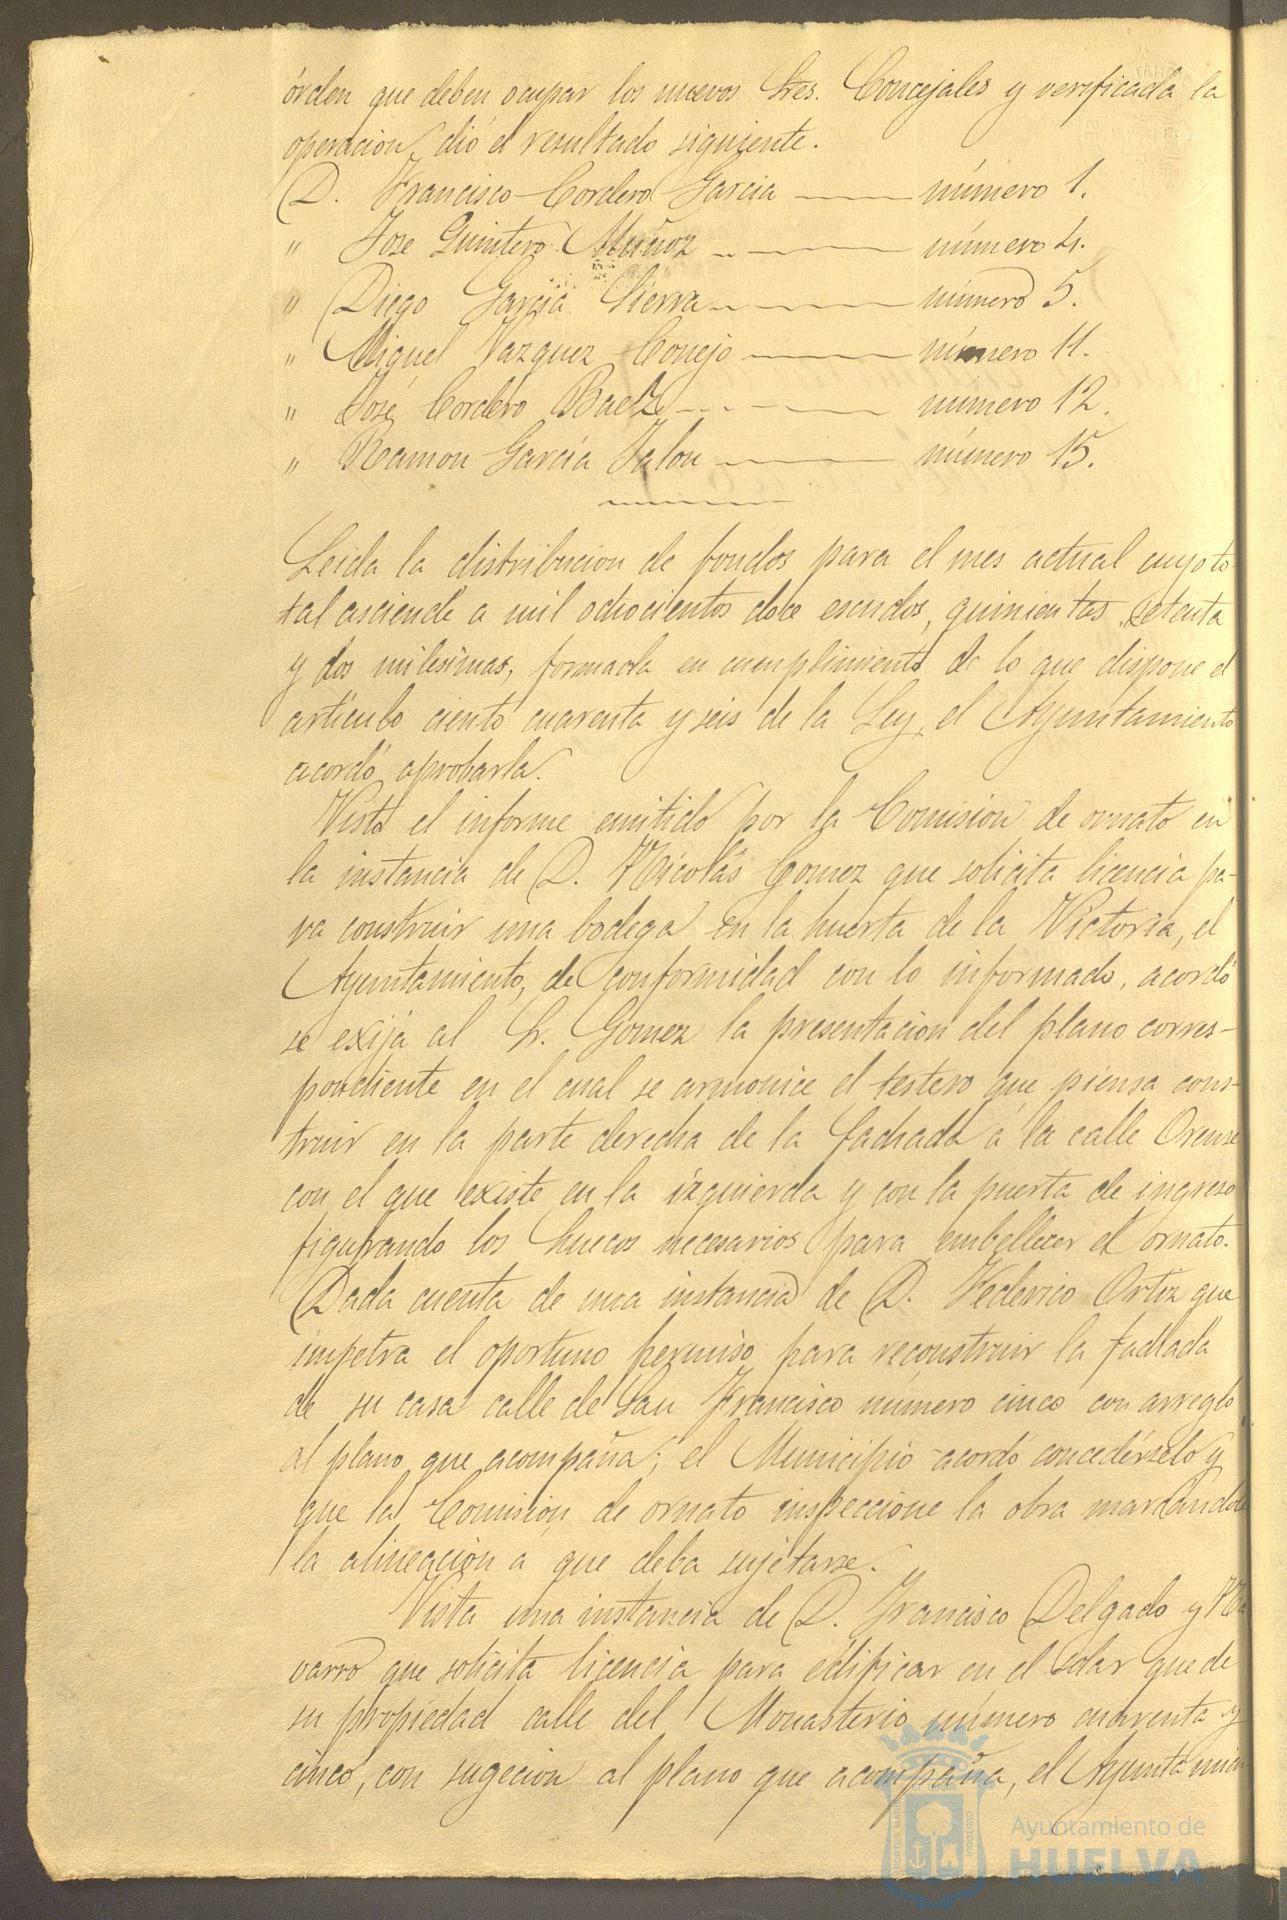 órden que deben ocupar los nuevos Sres. Concejales y verificada la
operacion, dió el resultado siguiente.
D. Francisco Cordero Garcia ——— número 1.
" José Quintero Muñoz ——— número 4.
" Diego Garcia Sierra ——— número 5.
" Miguel Vazquez Conejo ——— número 11.
" José Cordero Baez ——— número 12.
" Ramon Garcia Jalon ——— número 15.
Leida la distribucion de fondos para el mes actual cuyo to-
tal asciende a mil ochocientos doce escudos, quinientas setenta
y dos milésimas, formada en cumplimiento de lo que dispone el
artículo ciento cuarenta y seis de la Ley, el Ayuntamiento
acordó aprobarla.
Visto el informe emitido por la Comision de ornato en
la instancia de D. Nicolás Gomez que solicita licencia pa-
ra construir una bodega en la huerta de la Victoria, el
Ayuntamiento, de conformidad con lo informado, acordó
se exija al Sr. Gomez la presentacion del plano corres-
pondiente en el cual se armonice el testero que piensa cons-
truir en la parte derecha de la fachada á la calle Orense
con el que existe en la izquierda y con la puerta de ingreso
figurando los huecos necesarios para embellecer el ornato.
Dada cuenta de una instancia de D. Federico Ortiz que
impetra el oportuno permiso para reconstruir la fachada
de su casa calle de San Francisco número cinco con arreglo
al plano que acompaña; el Municipio acordó concedérselo y
que la Comision de ornato inspeccione la obra marcándole
la alineacion a que deba sujetarse.
Vista una instancia de D. Francisco Delgado y Na
varro que solicita licencia para edificar en el solar que de
su propiedad calle del Monasterio número cuarenta y
cinco, con sugecion al plano que acompaña, el Ayuntamien
Ayuntamiento de
HUELVA